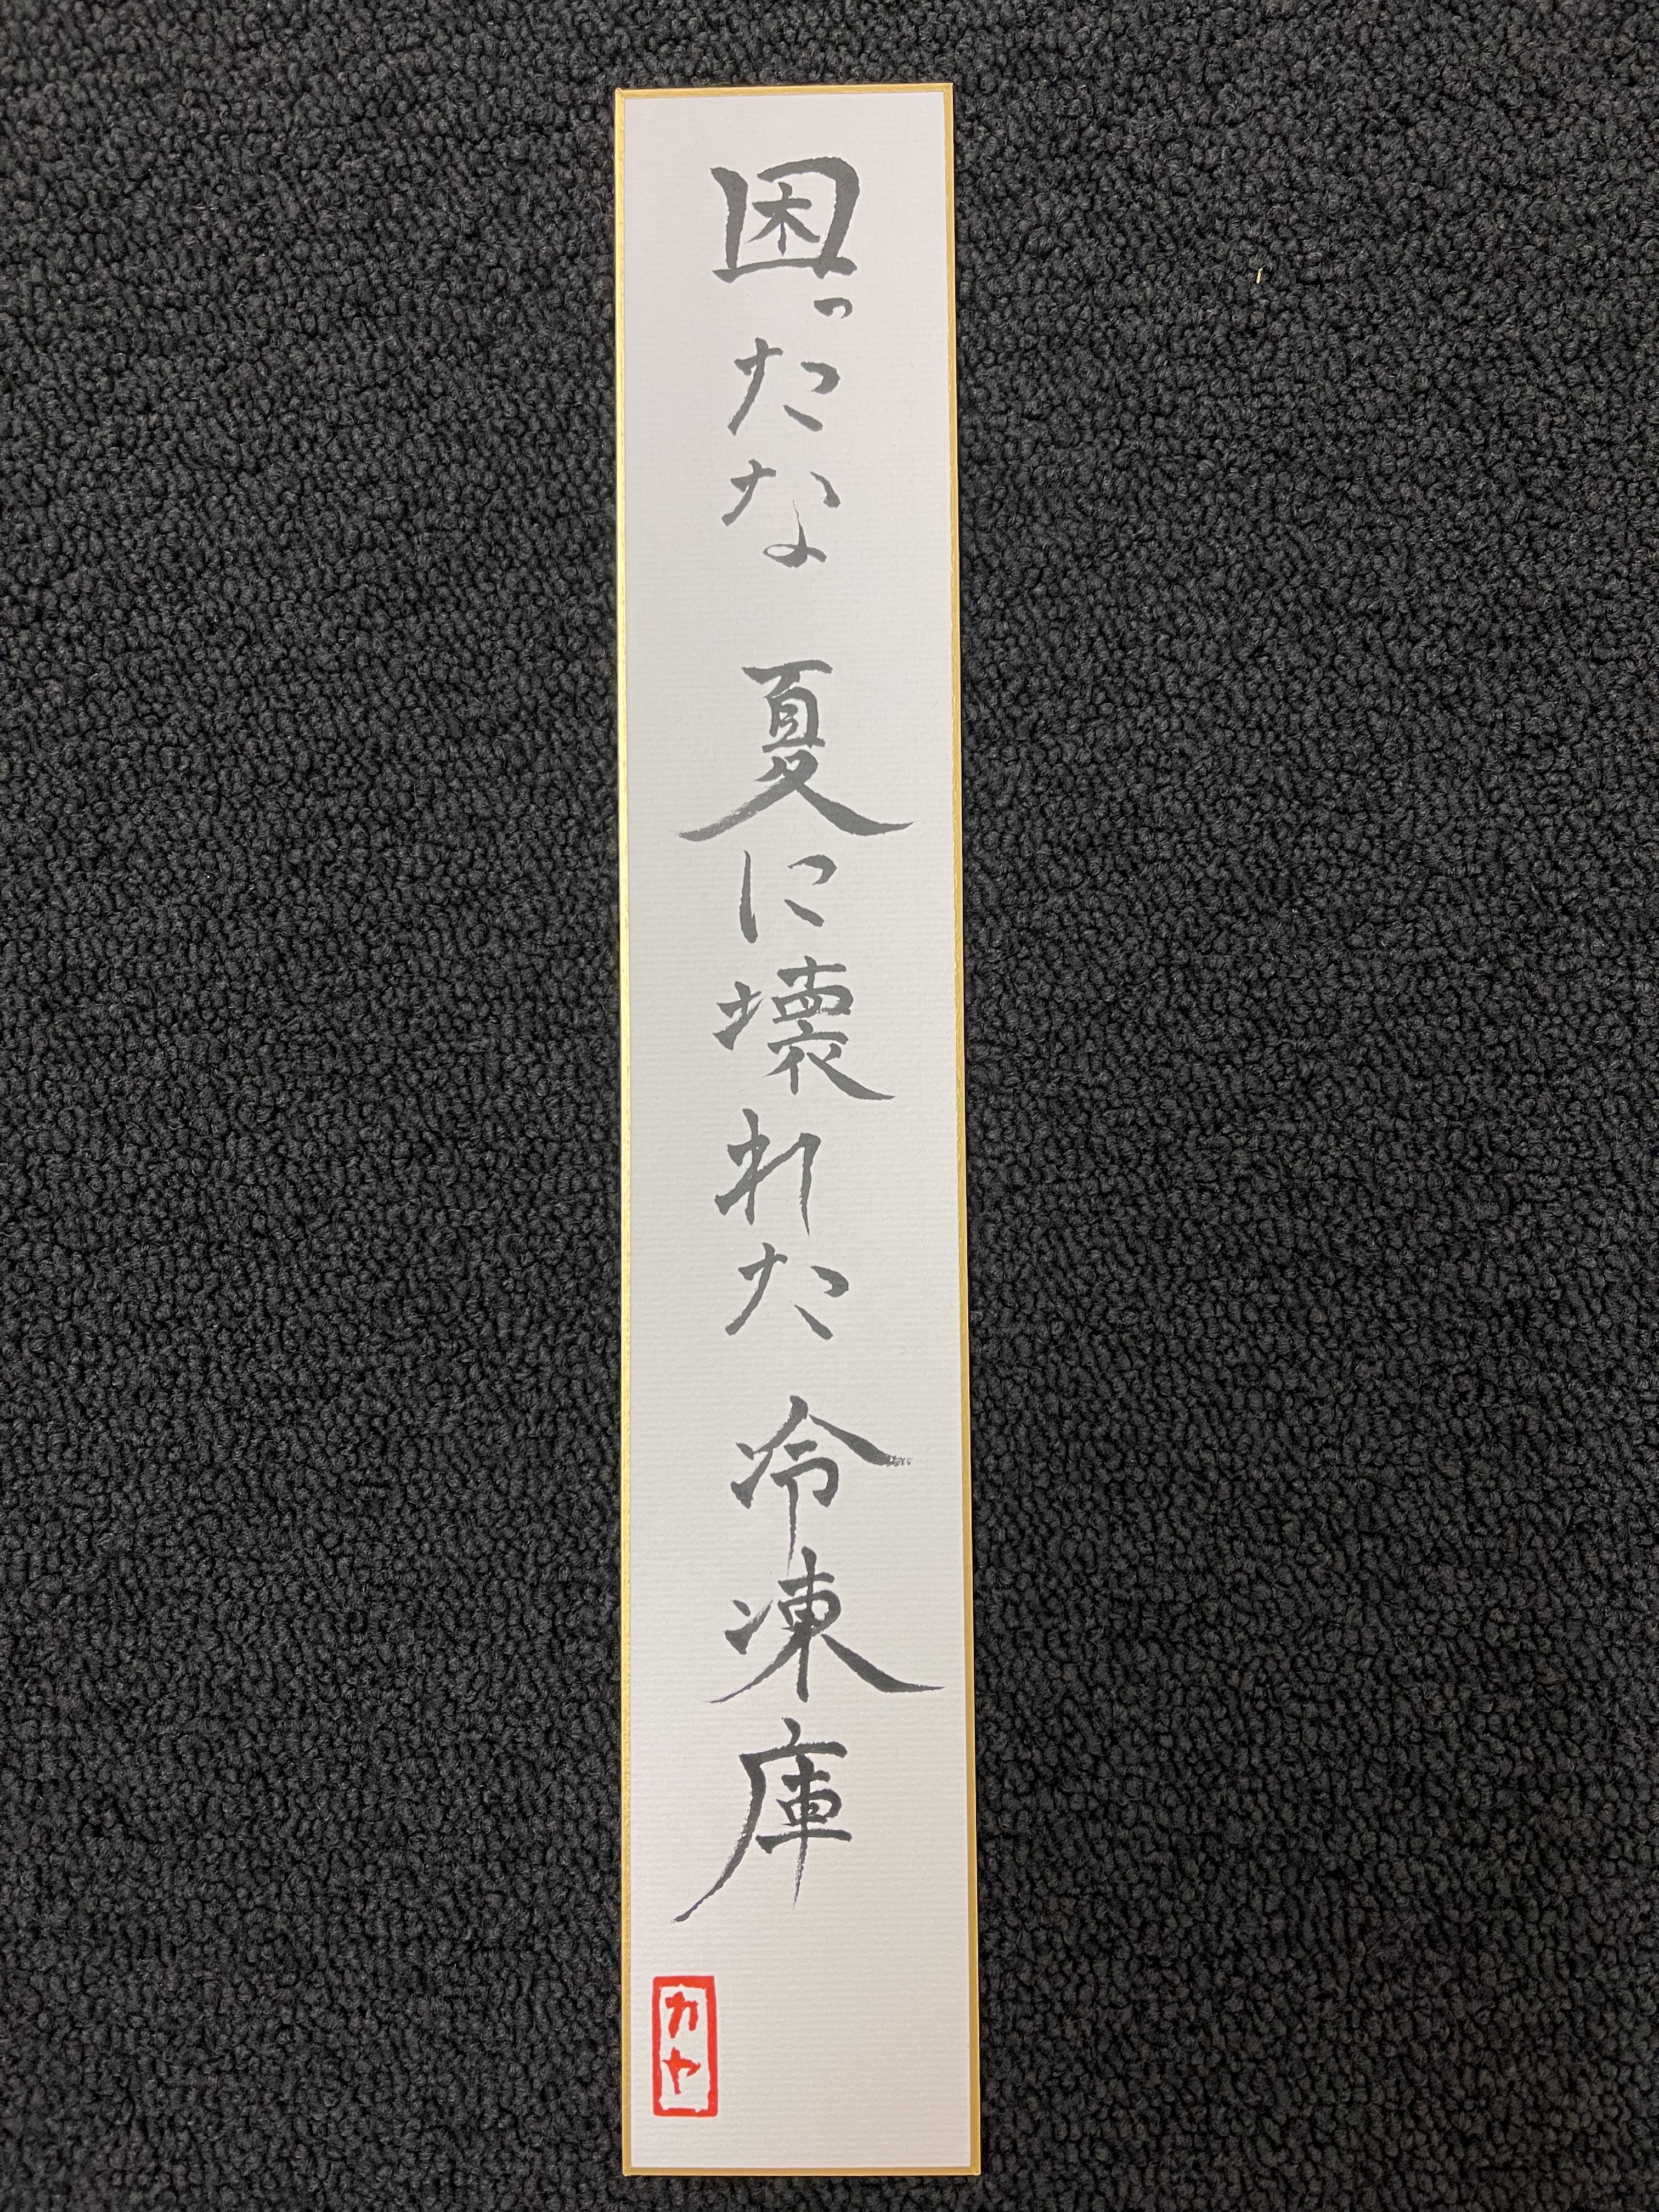 困ったな 夏に壊れた 冷凍庫
カヤ